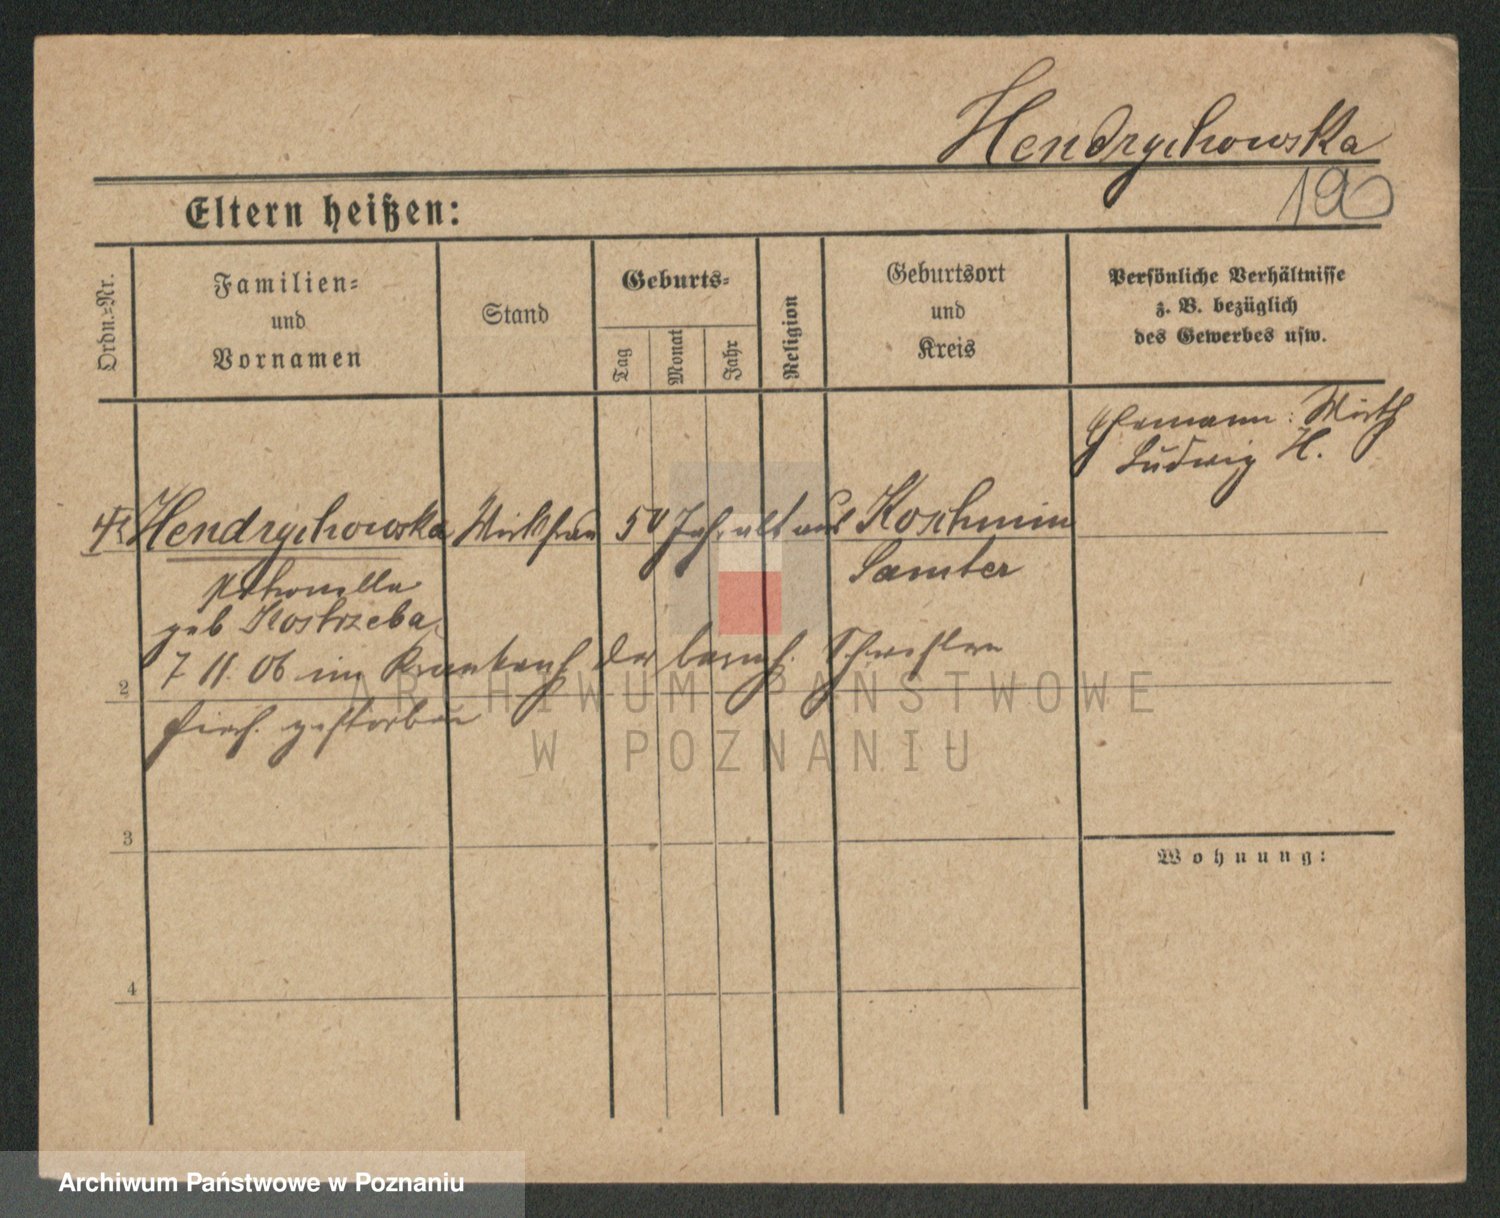 Hendrychowska
Eltern heißen:
Ordn.=Nr.
Familien=
und
Vornamen
Stand
Geburts=
Tag
Monat
Jahr
Religion
Geburtsort
und
Kreis
Persönliche Verhältnisse
z. B. bezüglich
des Gewerbes usw.
Ehemann: Wirth
Ludwig H.
Hendrychowska Wirthfrau 50 Jahr alt aus Koschmin
Samter
Petronella
geb Kostrzeba
7 11. 06 im Krankenh der barmh. Schwestern
2
hier. gestorben
3
Wohnung:
4
ARCHIWUM PAŃSTWOWE
W POZNANIU
Archiwum Państwowe w Poznaniu